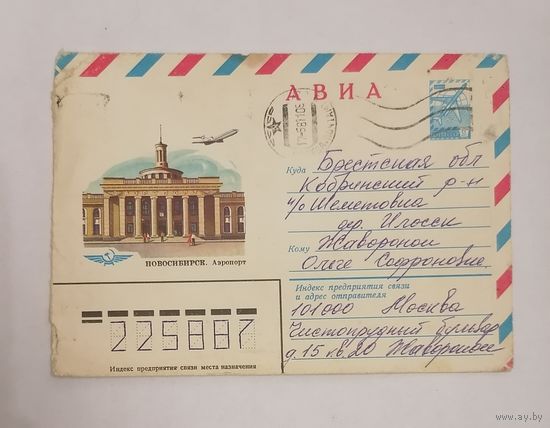 АВИА
Куда Брестская обл
Кобринский р-н
п/о Шеметовка
дер. Илосск
Кому Жаворонок
Ольге Софроновне.
НОВОСИБИРСК. Аэропорт
Индекс предприятия связи
и адрес отправителя
101000 Москва
Чистопрудный бульвар
д. 15 кв. 20 Жаворонок
225887
Индекс предприятия связи места назначения
ay.by